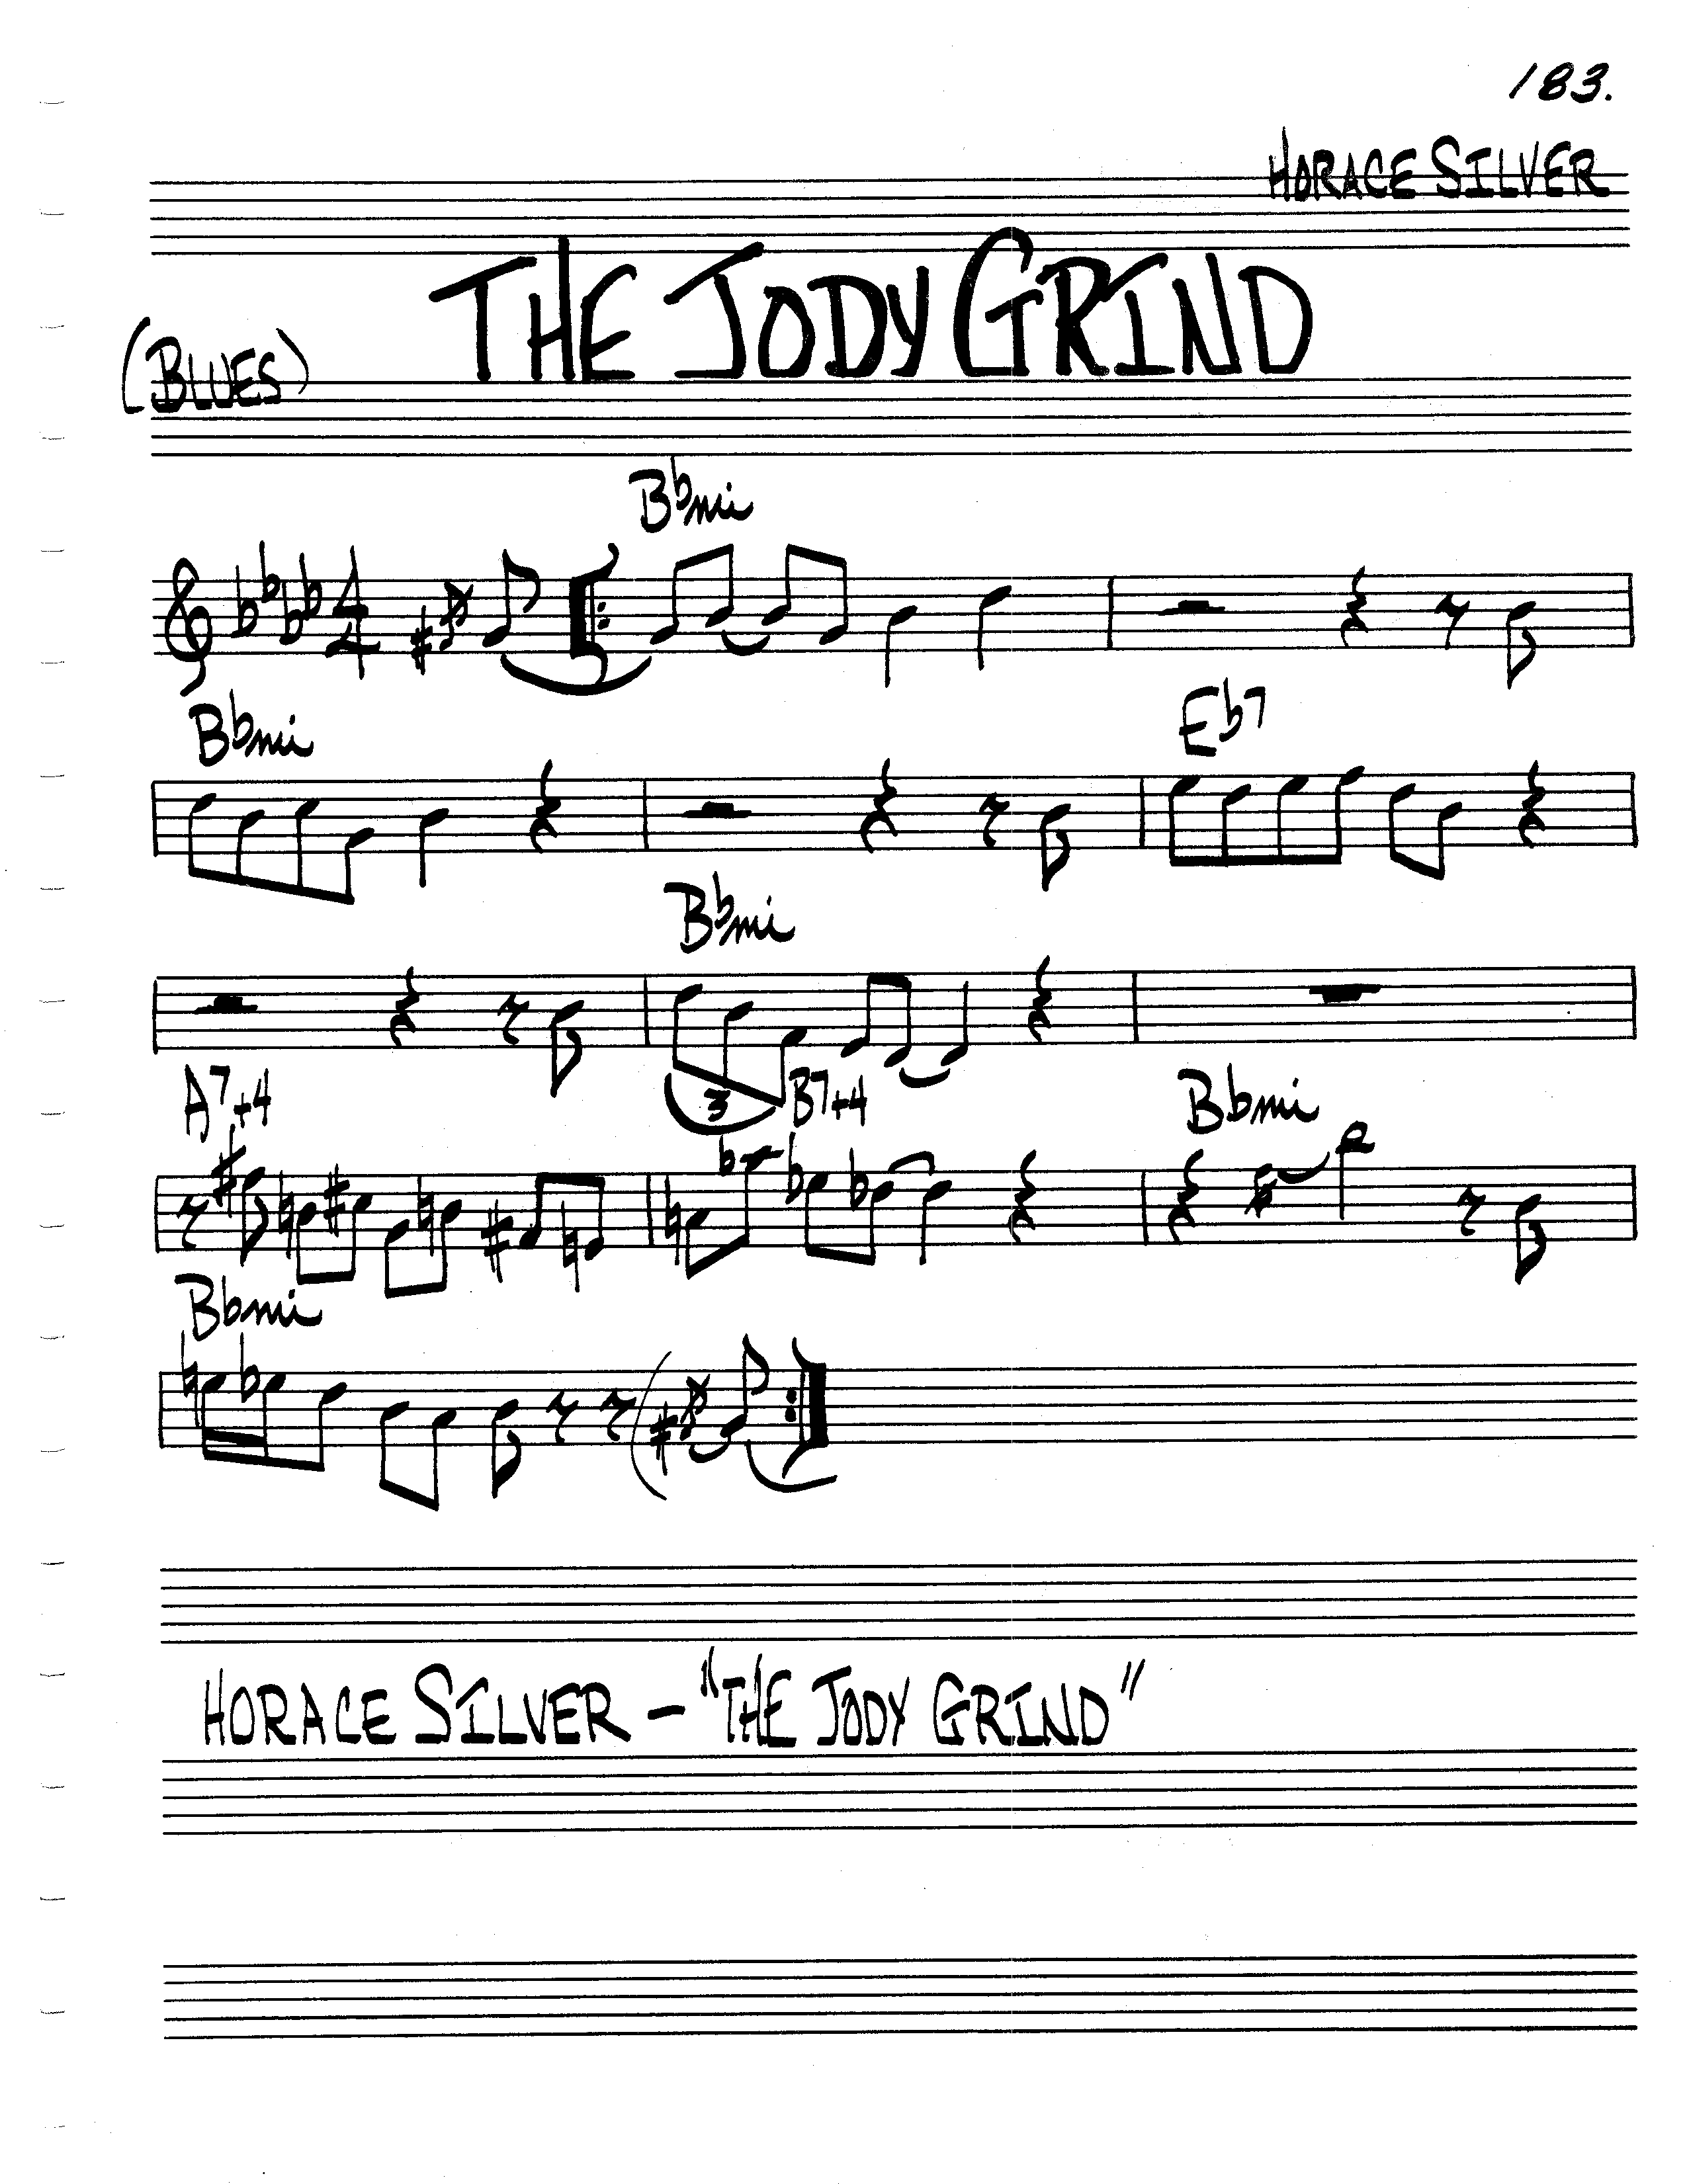 183.
HORACE SILVER
THE JODY GRIND
(BLUES)
B♭mi
B♭mi E♭7
B♭mi
A7+4 B7+4 B♭mi
3
B♭mi
HORACE SILVER – "THE JODY GRIND"